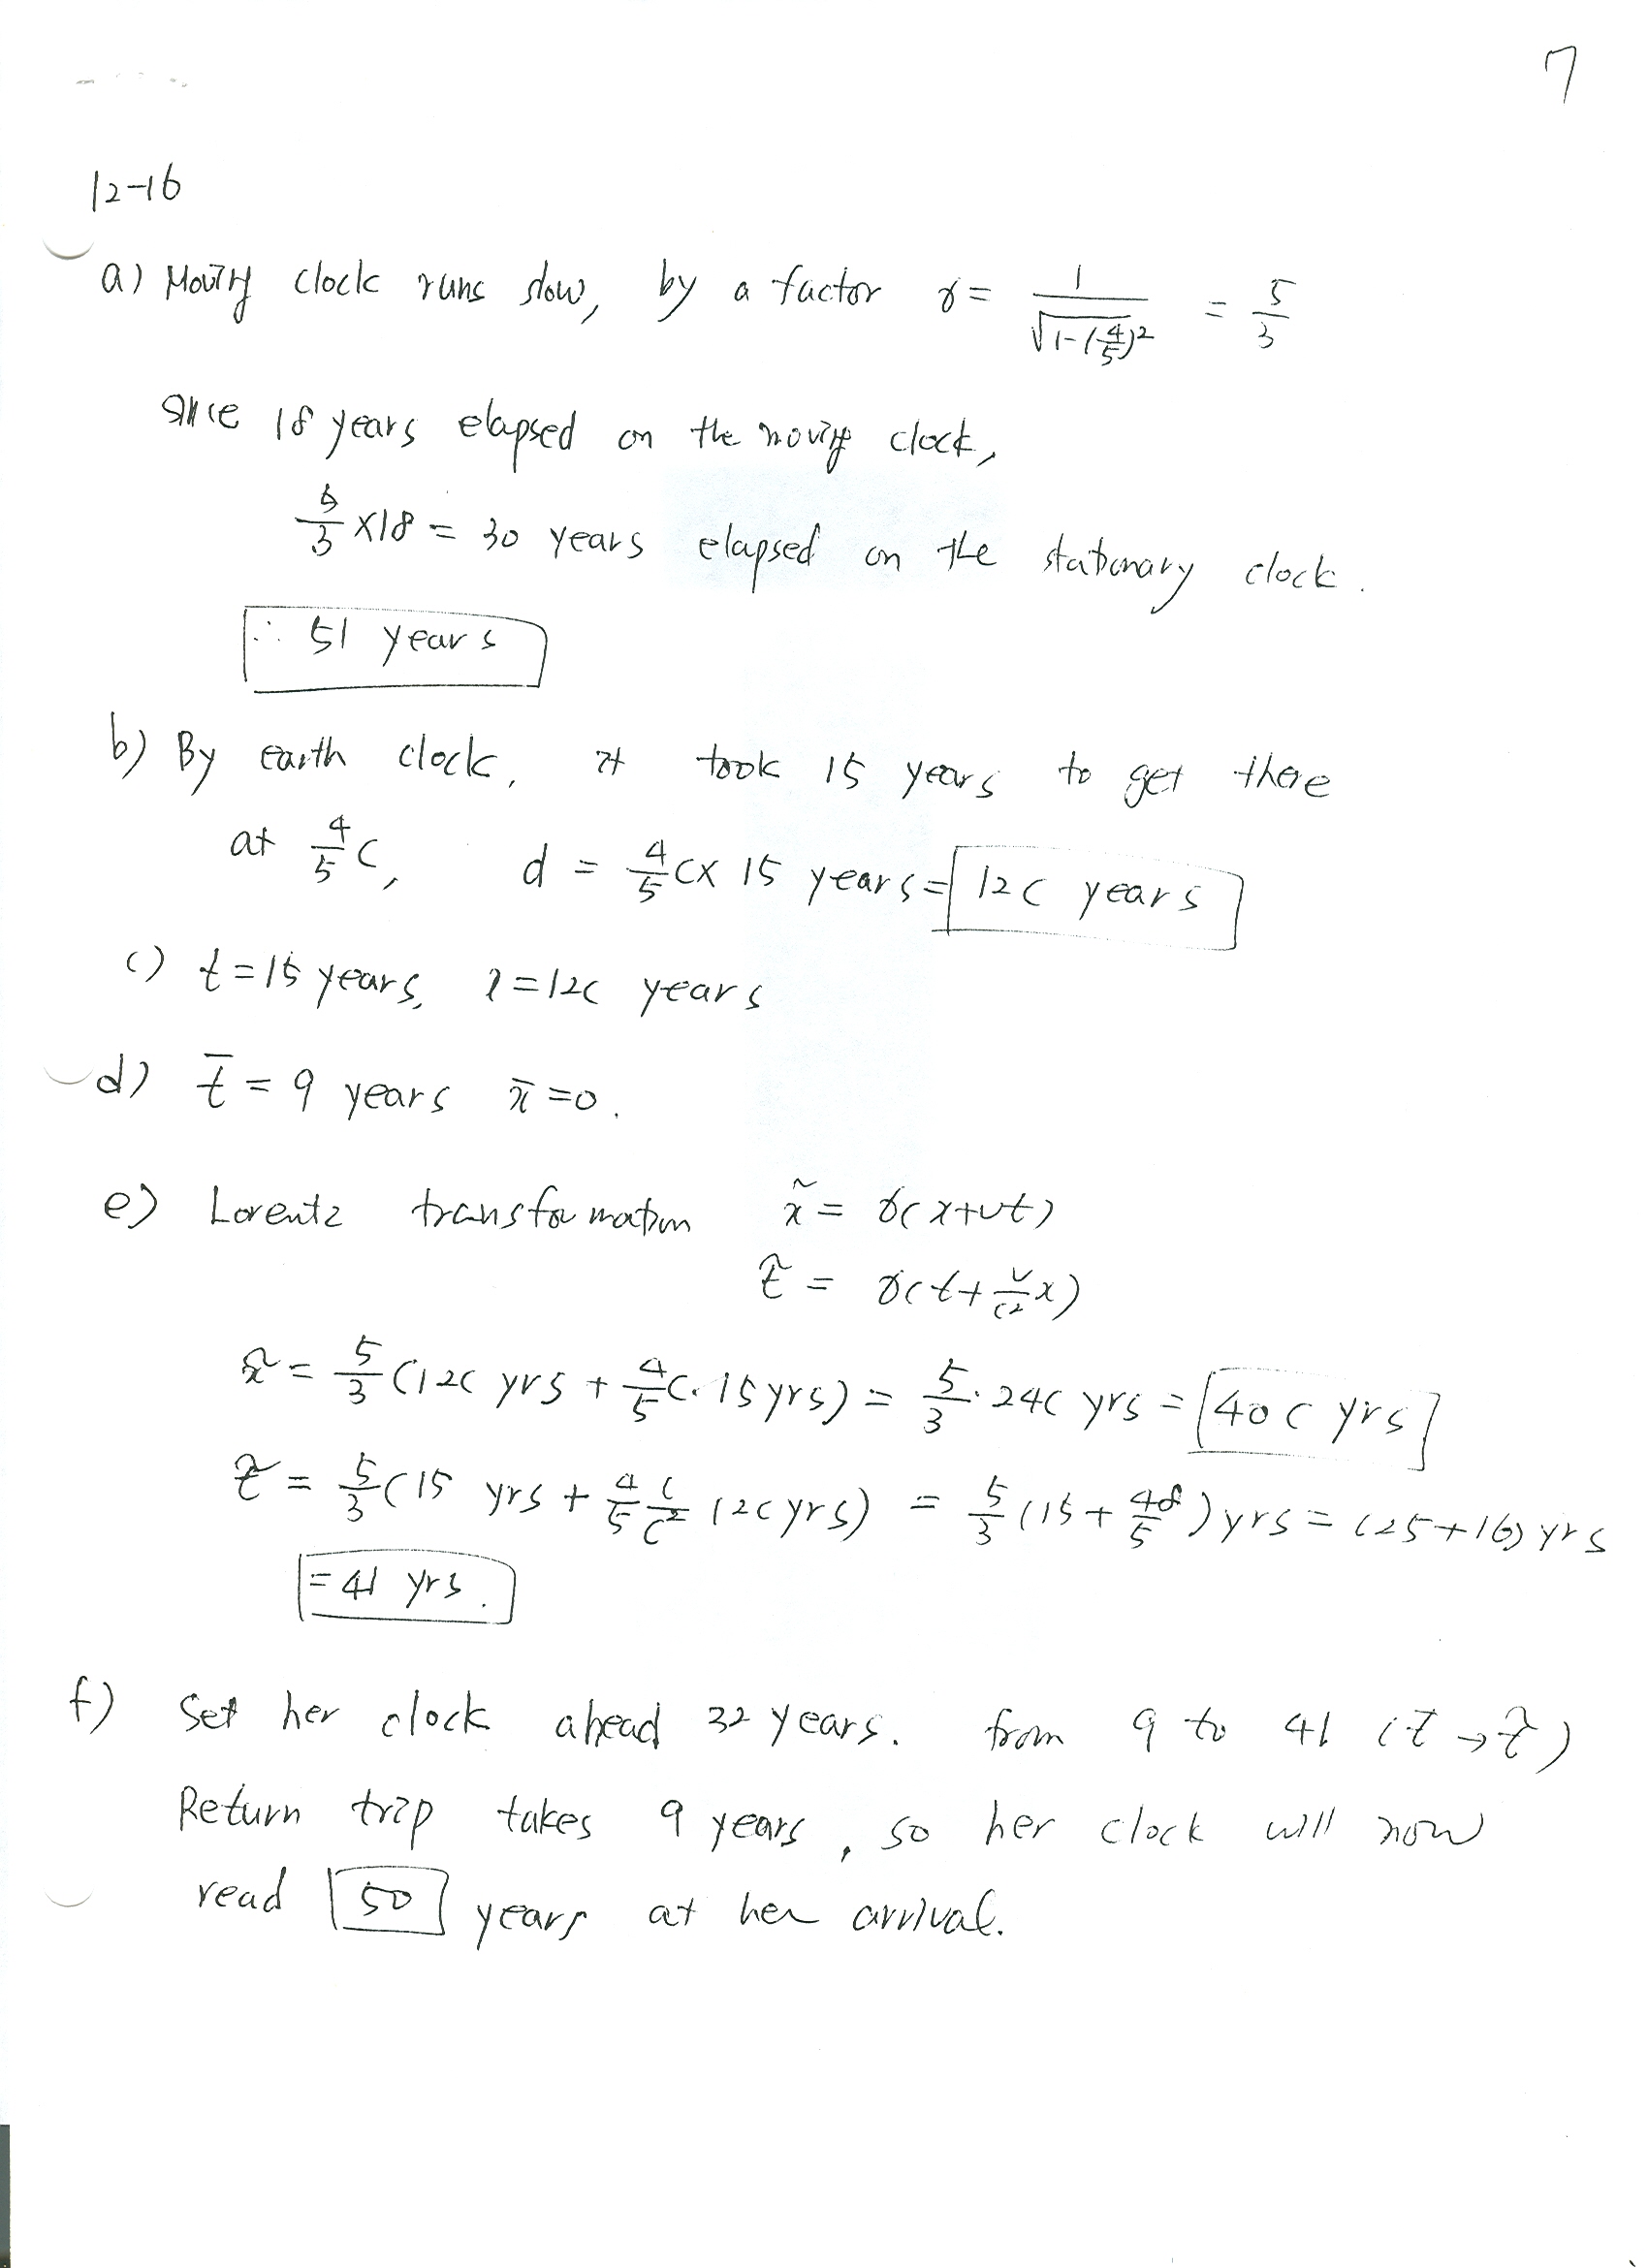 7
12-16
a) Moving clock runs slow, by a factor γ = 1/√(1-(4/5)²) = 5/3
since 18 years elapsed on the moving clock,
5/3 × 18 = 30 years elapsed on the stationary clock.
∴ 51 years
b) By earth clock, it took 15 years to get there
at 4/5 c, d = 4/5 c × 15 years = 12c years
c) t = 15 years, x = 12c years
d) t̄ = 9 years x̄ = 0.
e) Lorentz transformation x̃ = γ(x+vt)
t̃ = γ(t + v/c² x)
x̃ = 5/3 (12c yrs + 4/5 c · 15 yrs) = 5/3 · 24c yrs = 40c yrs
t̃ = 5/3 (15 yrs + 4/5 c/c² 12c yrs) = 5/3 (15 + 48/5) yrs = (25+16) yrs
= 41 yrs.
f) Set her clock ahead 32 years. from 9 to 41 (t̄ → t̃)
Return trip takes 9 years, so her clock will now
read 50 years at her arrival.